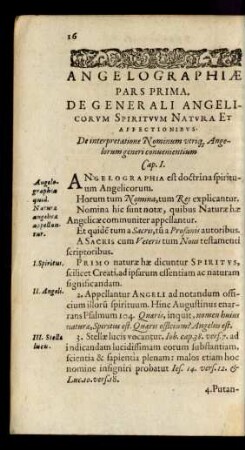 16
ANGELOGRAPHIÆ
PARS PRIMA.
DE GENERALI ANGELI-
CORVM SPIRITVVM NATVRA ET
AFFECTIONIBVS.
De interpretatione Nominum utriq, Ange-
lorum generi convenientium
Cap. I.
Angelo-
graphia
quid.
Natura
angelica
appellan-
tur.
ANGELOGRAPHIA est doctrina spiritu-
um Angelicorum.
Horum tum Nomina, tum Res explicantur.
Nomina hic sunt notæ, quibus Naturæ hæ
Angelicæ communiter appellantur.
Et quidē tum a Sacris, tū a Profanis autoribus.
A SACRIS cum Veteris tum Novi testamenti
scriptoribus.
I. Spiritus. PRIMO naturæ hæ dicuntur SPIRITVS,
scilicet Creati, ad ipsarum essentiam ac naturam
significandam.
II. Angeli. 2. Appellantur ANGELI ad notandum offi-
cium illorū spirituum. Hinc Augustinus enar-
rans Psalmum 104. Quæris, inquit, nomen huius
naturæ, Spiritus est. Quæris officium? Angelus est.
III. Stellæ
lucis.
3. Stellæ lucis vocantur. Iob. cap. 38. vers. 7. ad
indicandam lucidissimam eorum substantiam,
scientia & sapientia plenam: malos etiam hoc
nomine insigniri probatur Ies. 14. vers. 12. &
Luc. 10. vers. 18.
4. Putan-